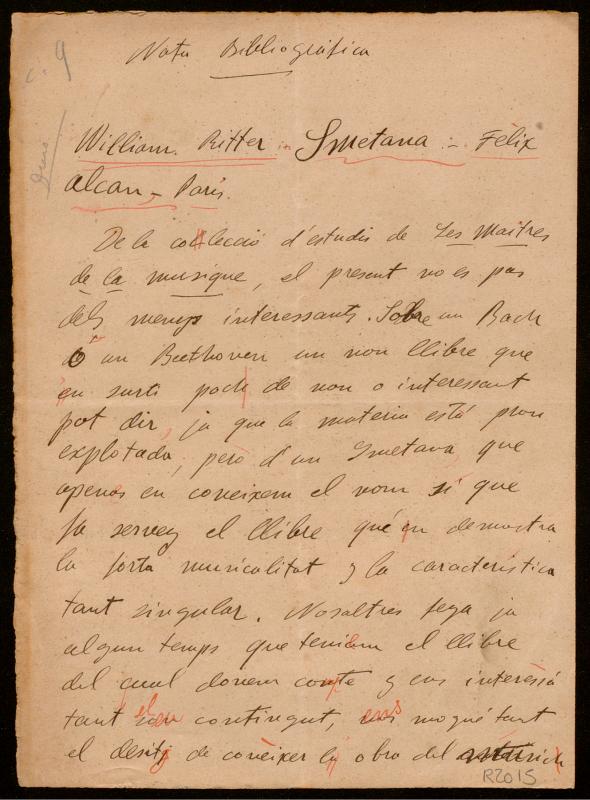 Nota Bibliográfica
c. 9
William Ritter - Smetana - Félix
Alcan - París.
De la collecció d'estudis de Les Maîtres
de la musique, el present no es pas
dels menys interessants. Sobre un Bach
o un Beethoven un nou llibre que
en surti poch de nou o interessant
pot dir, ja que la materia está prou
explotada, però d'un Smetana, que
apenas en coneixem el nom sí que
fa servey el llibre que'n demostra
la forta musicalitat y la característica
tant singular. Nosaltres fega ja
algun temps que teniam el llibre
del cual donem conte y ens interessá
tant el seu contingut, ens mogué tant
el desitg de conèixer la obra del
R2015